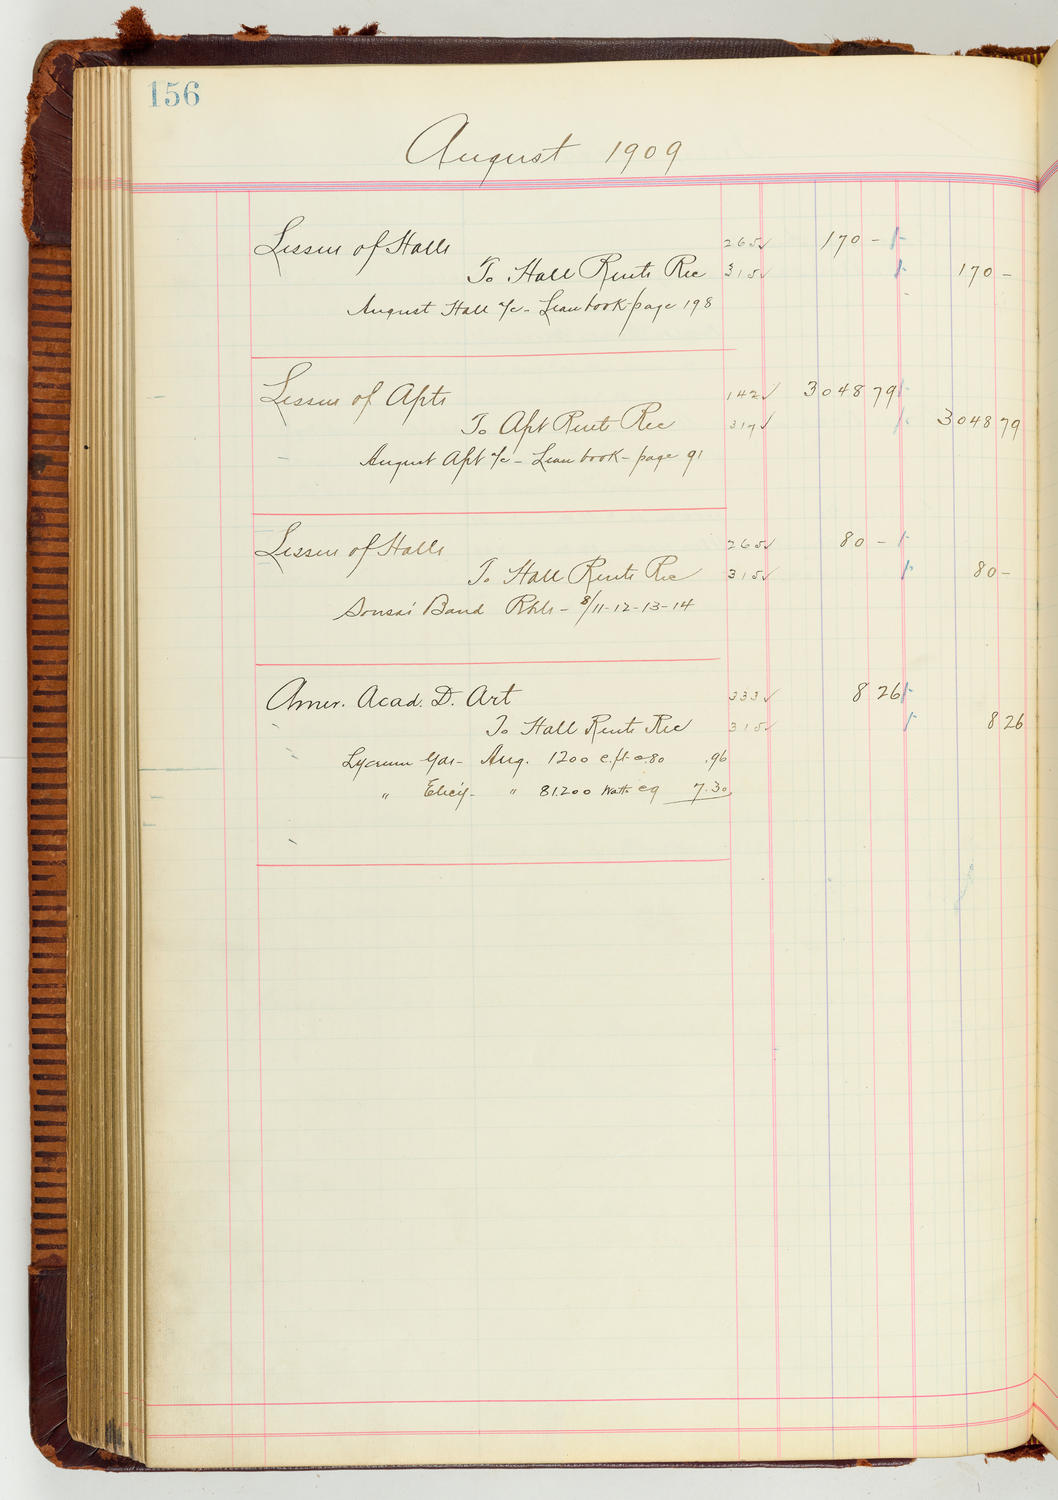 156
August 1909
Lessees of Halls 265✓ 170 -
To Hall Rents Rec 315✓ 170 -
August Hall a/c - Lease book - page 198
Lessees of Apts 142✓ 3048 79
To Apt Rents Rec 317✓ 3048 79
August Apt a/c - Lease book - page 91
Lessees of Halls 265✓ 80 -
To Hall Rents Rec 315✓ 80 -
Sousa's Band Rhls - 8/11-12-13-14
Amer. Acad. D. Art 333✓ 8 26
To Hall Rents Rec 315✓ 8 26
Lyceum Gas - Aug. 1200 c.ft @ 80 .96
" Elec'y - " 81.200 Watts @ 9 7.30